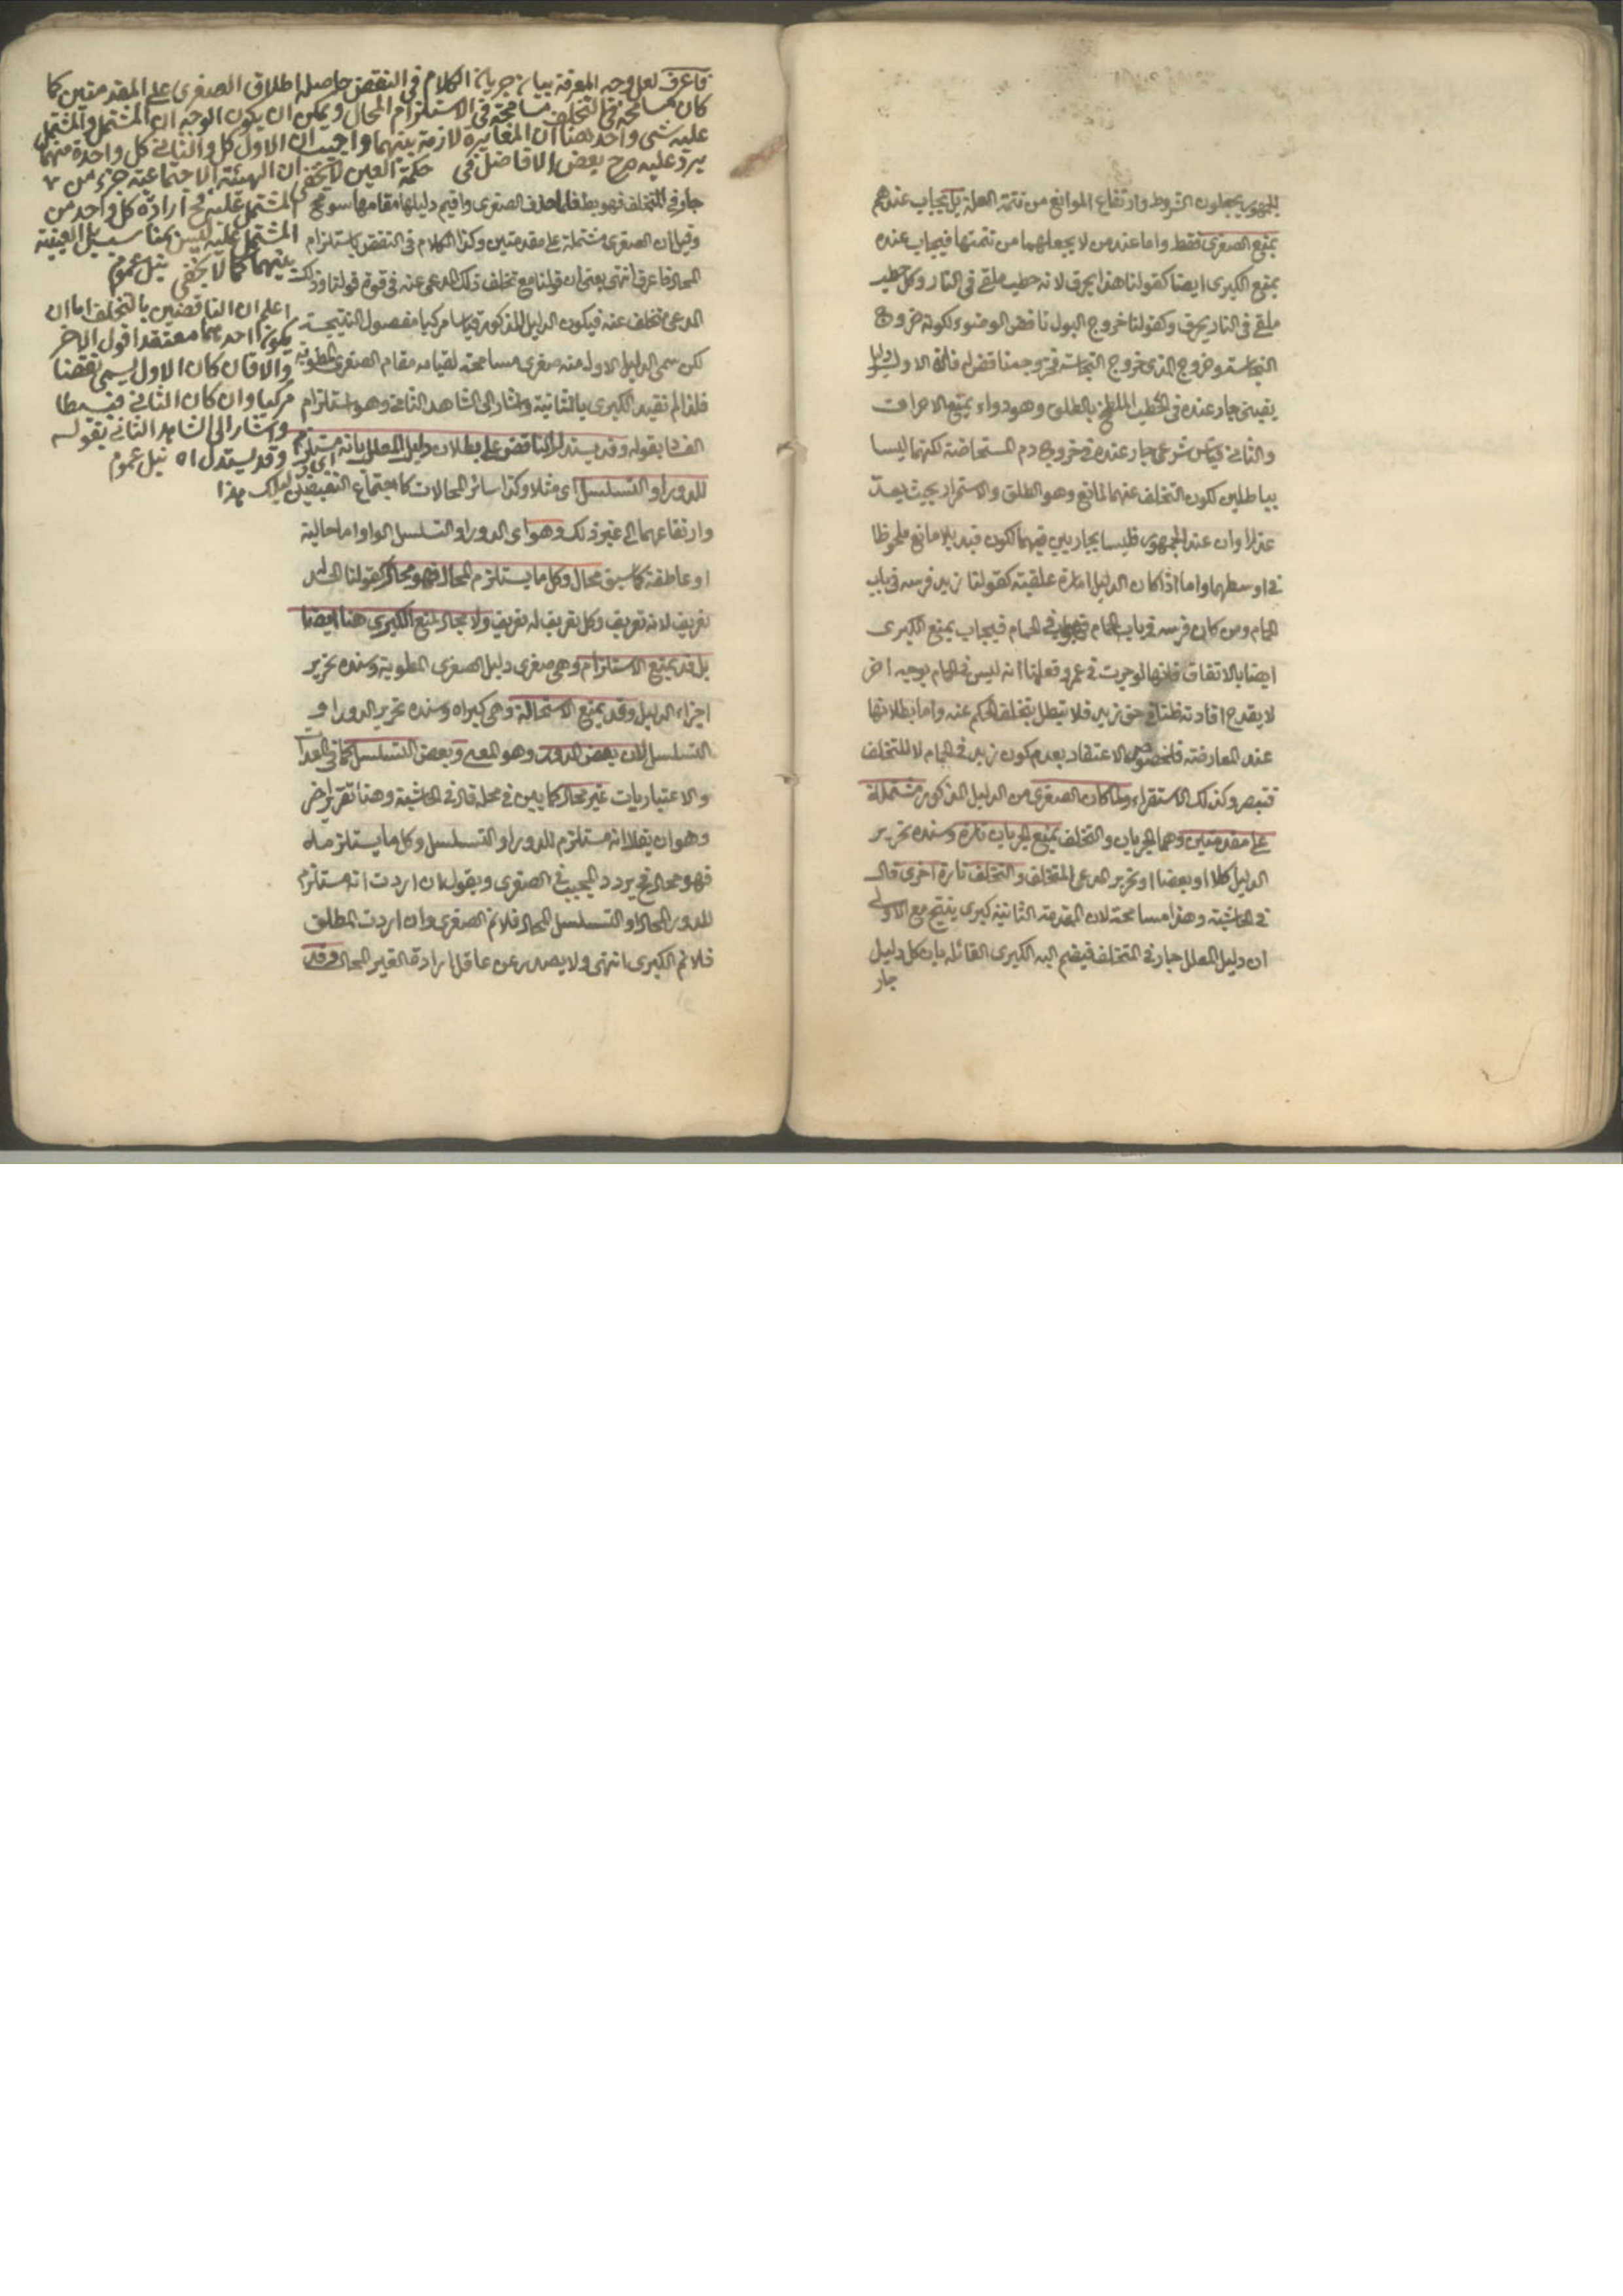 الجمهور يجعلون الشروط وارتفاع الموانع من تتمة العلة بل يجاب عندهم
بمنع الصغرى فقط واما عند من لا يجعلهما من تتمتها فيجاب عنده
بمنع الكبرى ايضا كقولنا هذا يحرق لانه حطب ملقى فى النار وكل حطب
ملقى فى النار يحرق وكقولنا خروج البول ناقض الوضوء لكونه خروج
النجاسة وخروج الذى خروج النجاسة فخروجه ناقض له فان الاول دليل
يقينى جار عنده فى الحطب الملطخ بالطلق وهو دواء يمنع الاحراق
والثانى قياس شرعى جار عنده فى خروج دم المستحاضة لكنهما ليسا
بباطلين لكون التخلف عنهما لمانع وهو الطلق والاستمرار بحيث يعد
عذرا وان عند الجمهور فليسا بجاريين فيهما لكون قيد بلا مانع ملحوظا
فى اوسطهما واما اذا كان الدليل امارة كقولنا زيد فرسه فى باب
الحمام ومن كان فرسه فى باب الحمام فهو فى الحمام فيجاب بمنع الكبرى
ايضا بالاتفاق فانها لو جرت فى عمرو فعلمنا انه ليس فى الحمام بوجه اخر
لا يقدح افادته ظنا فى حق زيد فلا تبطل بتخلف الحكم عنه واما بطلانها
عند المعارضة الاعتقاد بعدم كون زيد فى الحمام لا للتخلف
فتبصر وكذلك الاستقراء ولما كان الصغرى من الدليل المذكور مشتملة
على مقدمتين وهما الجريان والتخلف بمنع الجريان تارة وسنده تحرير
الدليل كلا او بعضا او تحرير المدعى المتخلف والتخلف تارة اخرى قال
فى الحاشية وهذا مسامحة لان المقدمة الثانية كبرى ينتج مع الاولى
ان دليل المعلل جار فى التخلف فيضم اليه الكبرى القائلة بان كل دليل
جار
فاعرف لعل وجه المعرفة بيان جريان الكلام فى النقض حاصله اطلاق الصغرى على المقدمتين كما
كان مسامحة فى التخلف مسامحة فى الاستلزام المحال ويمكن ان يكون الوجه ان المشتمل والمشتمل
عليه شئ واحد هنا ان المغايرة لازمة بينهما واجيب ان الاول كل والثانى كل واحدة منهما
يرد عليه صرح بعض الافاضل فى حكمة العين لا يخفى ان الهيئة الاجتماعية جزء من
المشتمل عليه فح ارادة كل واحد من
المشتمل عليه ليس بمناسب بل العينية
بينهما كما لا يخفى نيل عموم
اعلم ان الناقضين بالتخلف اما ان
يكون احدهما معتقدا قول الاخر
والا فان كان الاول يسمى نقضا
مركبا وان كان الثانى فبسيطا
واشار الى الشاهد الثانى بقوله
وقد يستدل اه نيل عموم
جار فى التخلف فهو بط فلما حذف الصغرى واقيم دليلها مقامها سومح
وقيل ان الصغرى مشتملة على مقدمتين وكذا الكلام فى النقض باستلزام
المحال فاعرف انتهى يعنى ان قولنا مع تخلف ذلك المدعى عنه فى قوة قولنا وذلك
المدعى متخلف عنه فيكون الدليل المذكور قياسا مركبا مفصول النتيجة
لكن سمى الدليل الاول منه صغرى مسامحة لقيامه مقام الصغرى المطوية
فلذا لم نقيد الكبرى بالثانية واشار الى الشاهد الثانى وهو استلزام
الفساد بقوله وقد يستدل الناقض على بطلان دليل المعلل بانه مستلزم
للدور او التسلسل اى مثلا وكذا سائر المحالات كاجتماع النقيضين
وارتفاعهما الى غير ذلك وهو اى الدور او التسلسل الواو اما حالية
او عاطفة كما سبق محال وكل ما يستلزم المحال فهو محال كقولنا الحد
تعريف لانه تعريف وكل تعريف له تعريف ولا مجال لمنع الكبرى هنا ايضا
بل قد يمنع الاستلزام وهى صغرى دليل الصغرى المطوية وسنده تحرير
اجزاء الدليل وقد يمنع الاستحالة وهى كبراه وسنده تحرير الدور او
التسلسل لان بعض الدور وهو المعى وبعض التسلسل كما فى العدا
والاعتباريات غير محال كما يبين فى محله قال فى الحاشية وهنا تقرير اخر
وهو ان يقال انه مستلزم للدور او التسلسل وكل ما يستلزمه
فهو محال فح يردد المجيب فى الصغرى ويقول ان اردت انه مستلزم
للدور المحال او التسلسل المحال فلا نم الصغرى وان اردت المطلق
فلا نم الكبرى انتهى ولا يصدر عن عاقل ارادة الغير المحال وقد